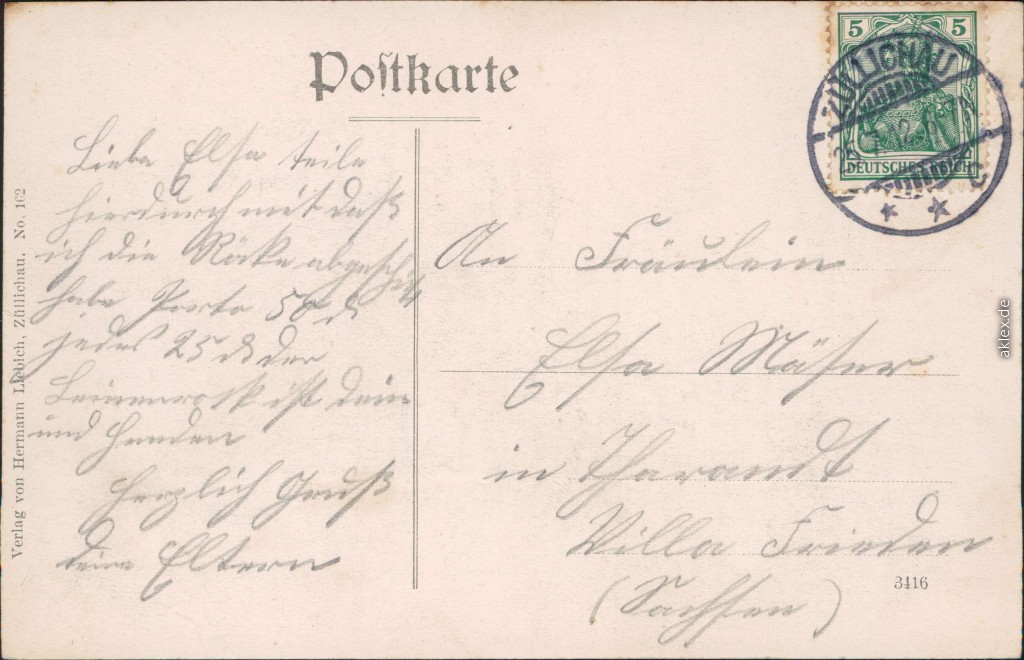 Postkarte
5 5
DEUTSCHES REICH
ZÜLLICHAU
Liebe Elsa teile
hierdurch mit daß
ich die Röcke abgeschickt
habe Porto 50 d
jedes 25 d der
Leinenrock ist dein
und Hemden
Herzlich Gruß
deine Eltern
An Fräulein
Elsa Mäser
in Tharandt
Villa Frieden
(Sachsen)
3416
Verlag von Hermann Liebich, Züllichau. No. 162
aklex.de